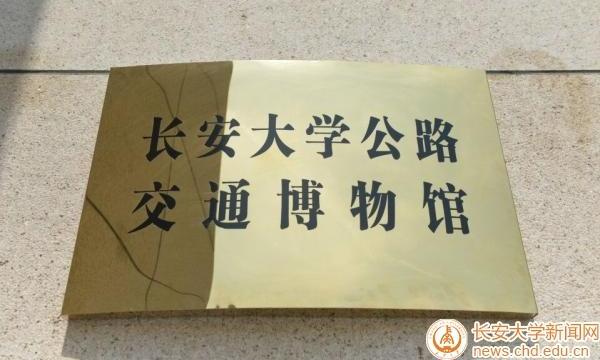 长安大学公路
交通博物馆
长安大学新闻网
news.chd.edu.cn